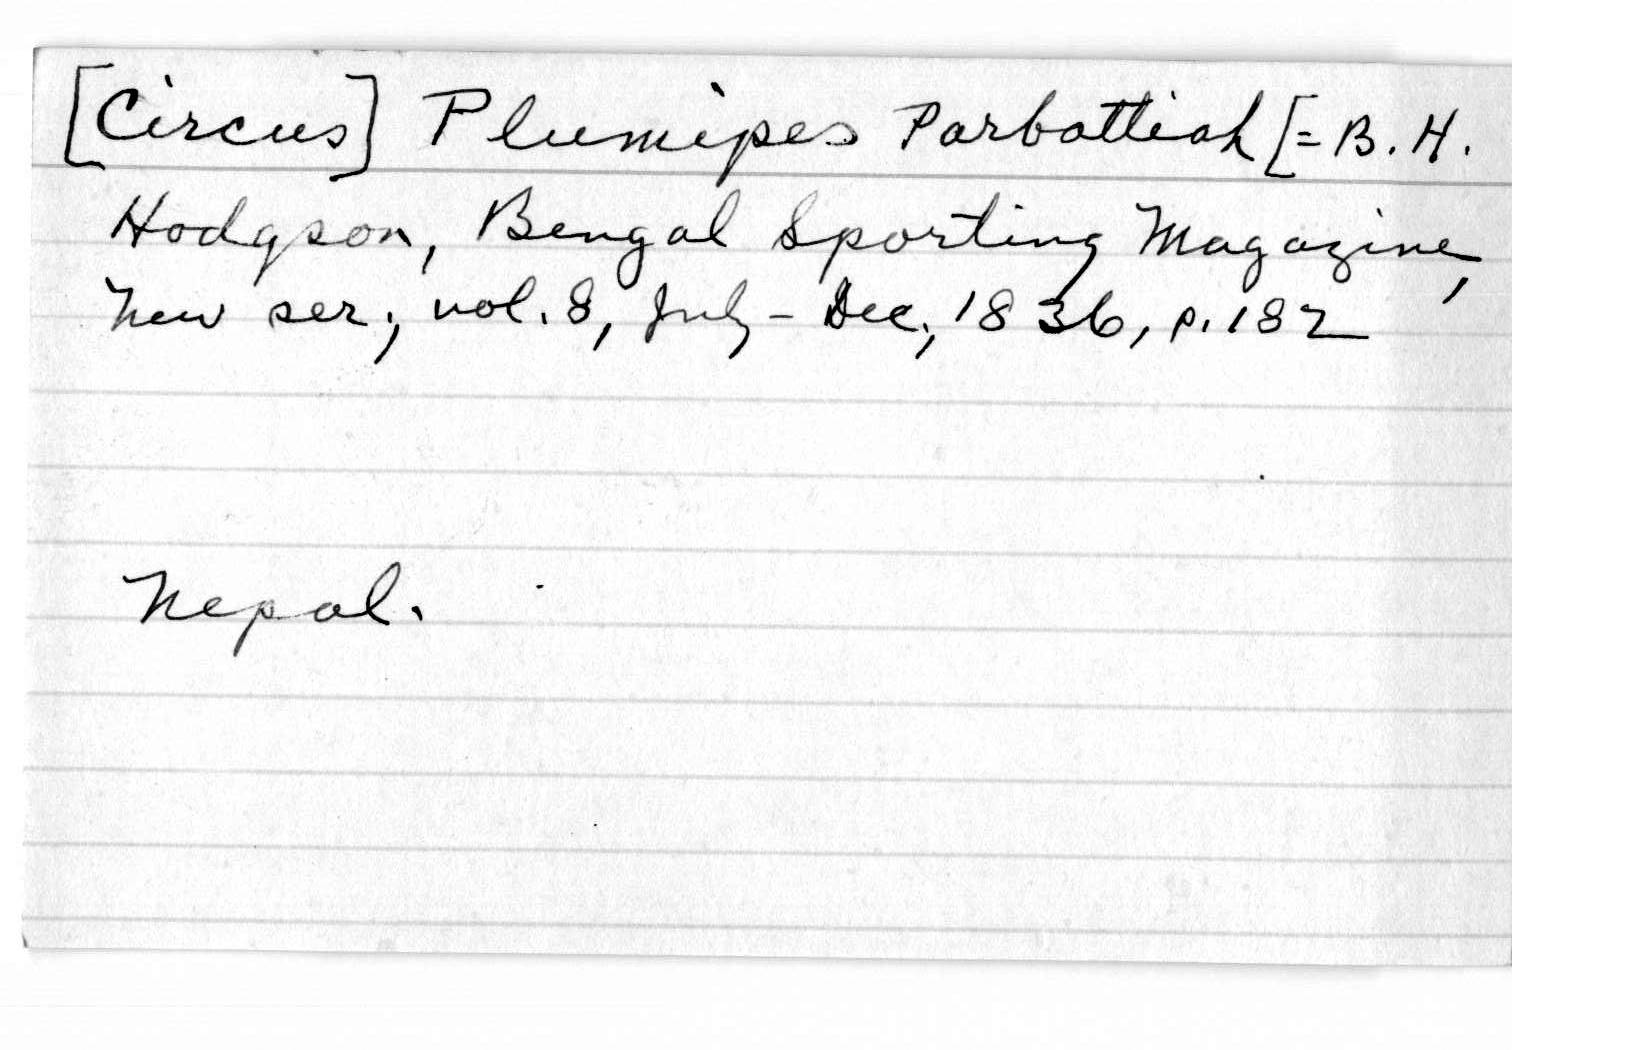 [Circus] Plumipes Parbattiah [= B. H.
Hodgson, Bengal Sporting Magazine,
new ser., vol. 8, July - Dec., 1836, p. 182
Nepal.